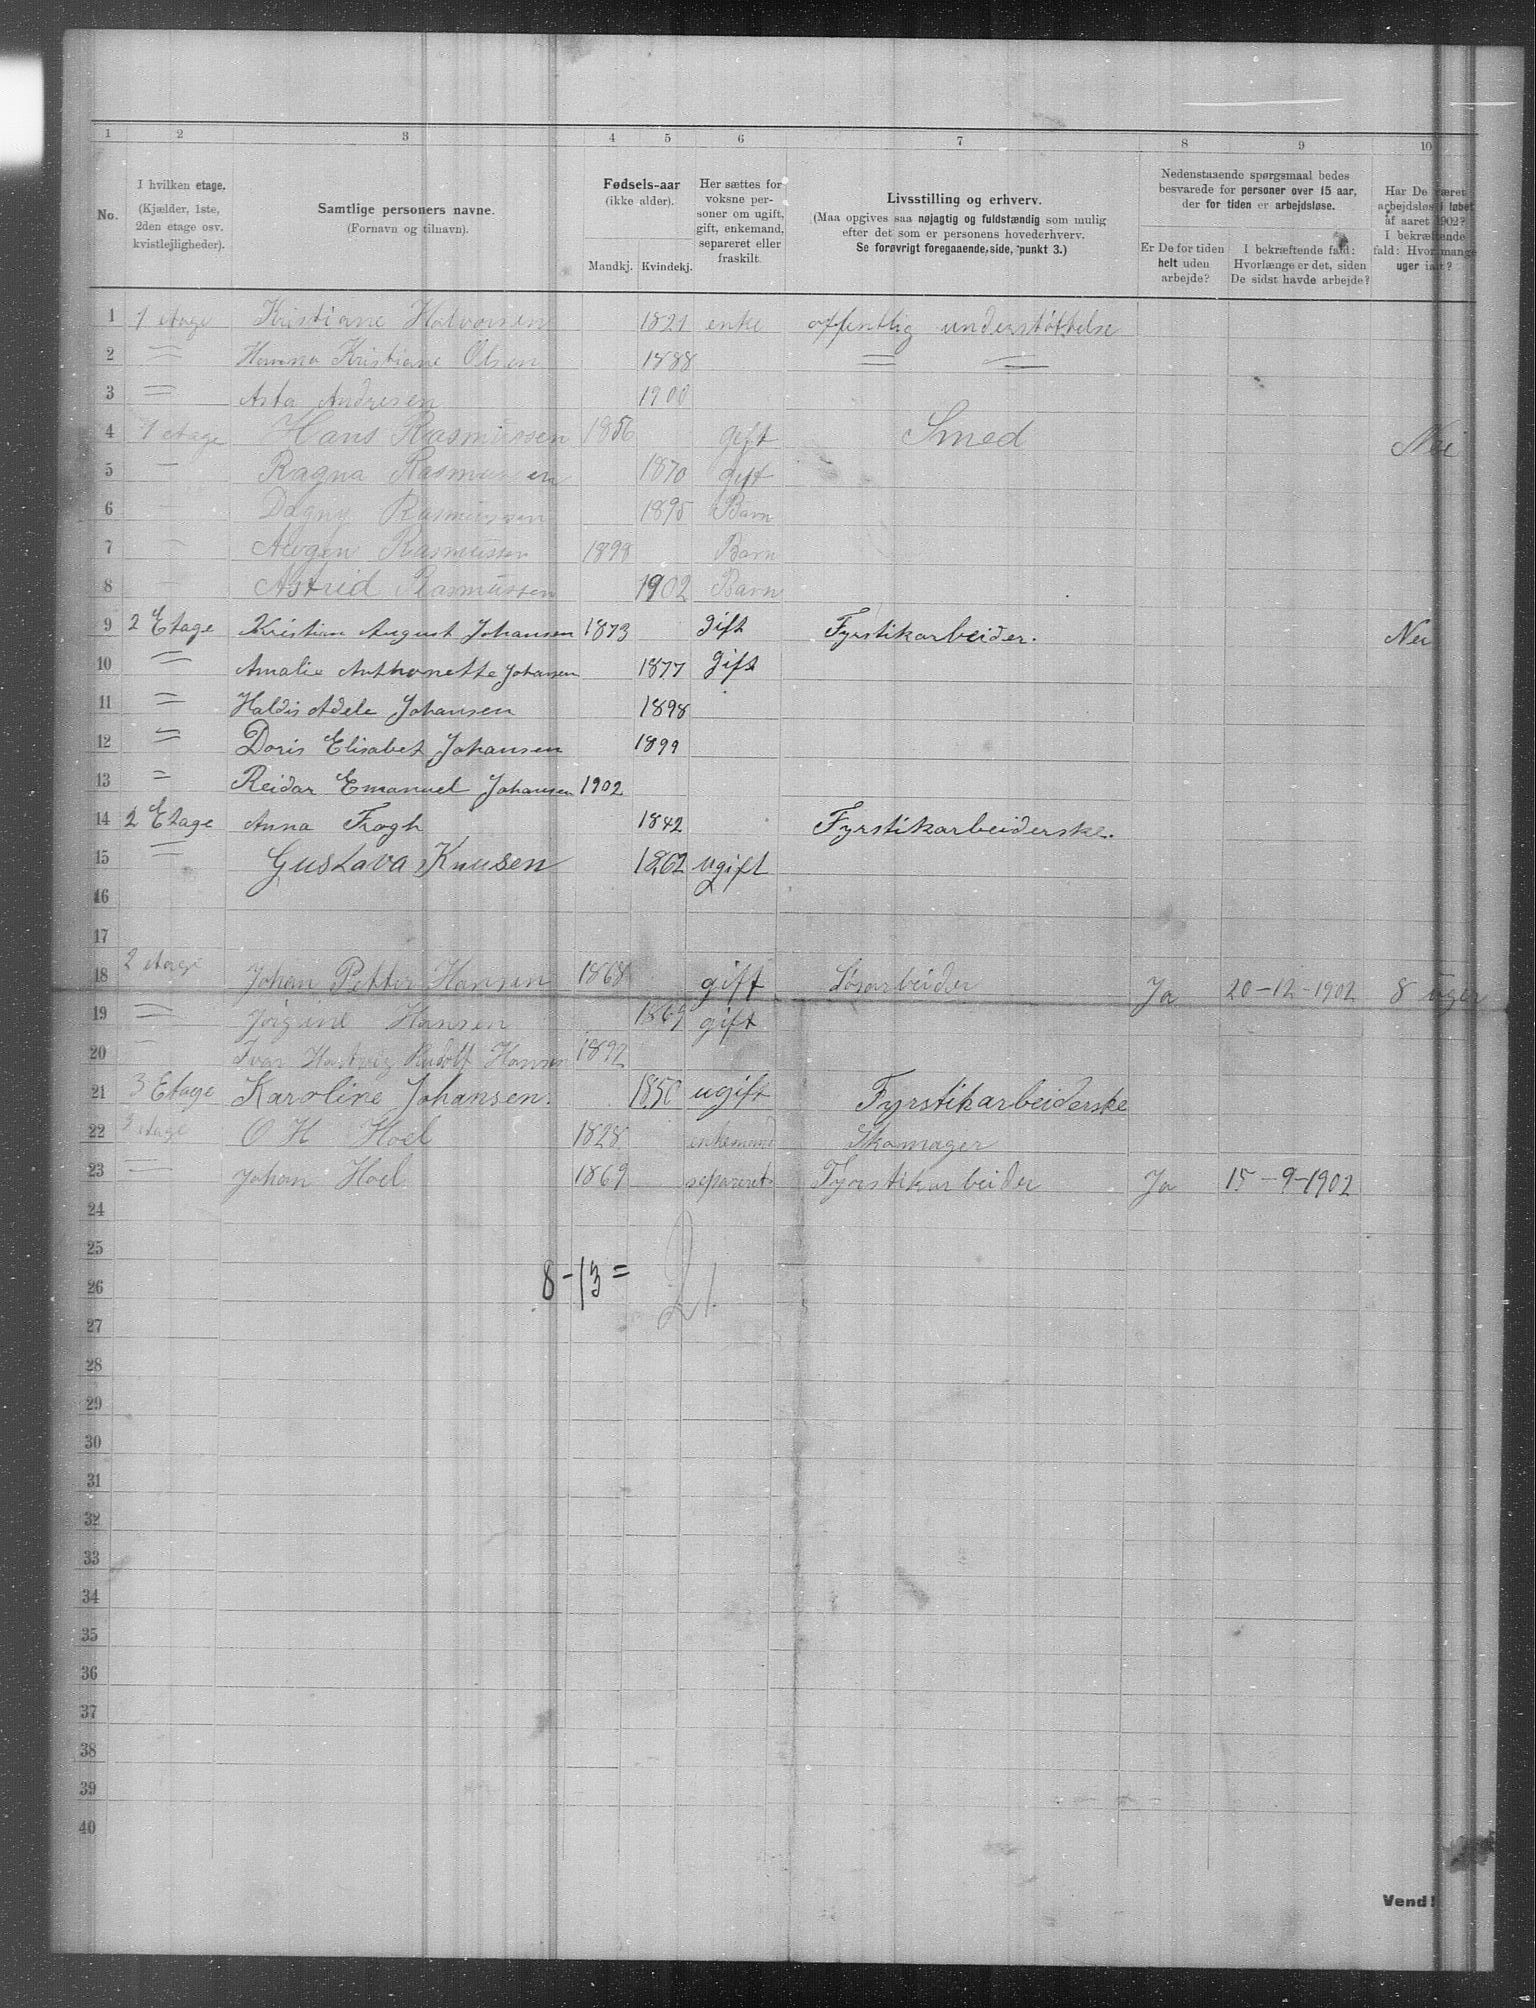 1 2 3 4 5 6 7 8 9 10
No.
I hvilken etage.
(Kjælder, 1ste,
2den etage osv.
kvistlejligheder).
Samtlige personers navne.
(Fornavn og tilnavn).
Fødsels-aar
(ikke alder).
Mandkj. Kvindekj.
Her sættes for
voksne per-
soner om ugift,
gift, enkemand,
separeret eller
fraskilt.
Livsstilling og erhverv.
(Maa opgives saa nøjagtig og fuldstændig som mulig
efter det som er personens hovederhverv.
Se forøvrigt foregaaende side, punkt 3.)
Nedenstaaende spørgsmaal bedes
besvarede for personer over 15 aar,
der for tiden er arbejdsløse.
Er De for tiden
helt uden
arbejde?
I bekræftende fald:
Hvorlænge er det, siden
De sidst havde arbejde?
Har De været
arbejdsløs i løbet
af aaret 1902?
I bekræftende
fald: Hvormange
uger ialt?
1 1 etage Kristiane Halvorsen 1821 enke offentlig understøttelse
2 = Kristiane Olsen 1888 = =
3 = Asta Andresen 1900
4 1 etage Hans Rasmussen 1856 gift Smed Nei
5 – Ragna Rasmussen 1870 gift
6 – Dagny Rasmussen 1895 Barn
7 – Rasmussen 1898 Barn
8 – Astrid Rasmussen 1902 Barn
9 2 Etage Kristian August Johansen 1873 gift Fyrstikarbeider. Nei
10 = Amalie Anthonette Johansen 1877 gift
11 = Haldis Adele Johansen 1898
12 = Doris Elisabet Johansen 1899
13 = Reidar Emanuel Johansen 1902
14 2 Etage Anna Frogh 1842 Fyrstikarbeiderske.
15 = Gustava Knusen 1862 ugift
16
17
18 2 etage Johan Petter Hansen 1868 gift Løsarbeider Ja 20-12-1902 8 uger
19 = Jørgine Hansen 1869 gift
20 – Ivar Hartvig Rudolf Hansen 1892
21 3 Etage Karoline Johansen. 1850 ugift Fyrstikarbeiderske
22 3 etage O H Hoel 1828 enkemand Skomager
23 = Johan Hoel 1869 separeret Fyrstikarbeider Ja 15-9-1902
24
25
26 8-13= 21.
27
28
29
30
31
32
33
34
35
36
37
38
39
40
Vend!